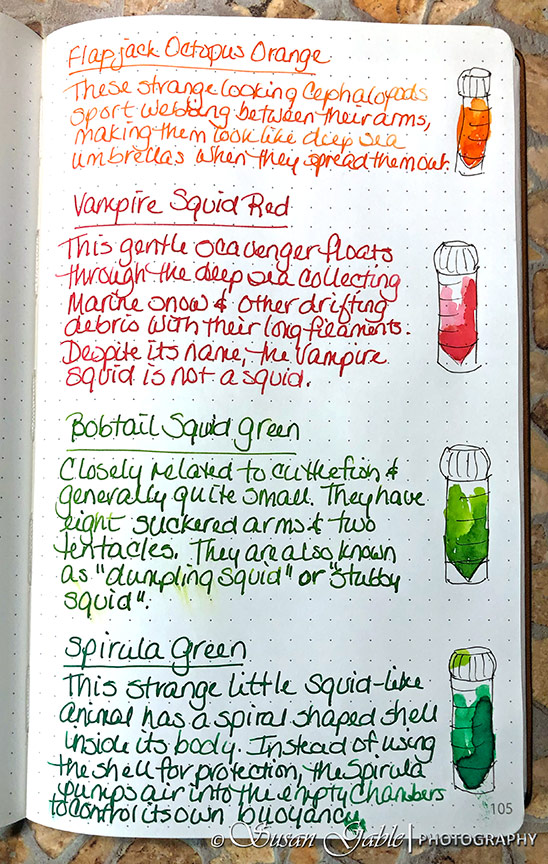 Flapjack Octopus Orange
These strange looking Cephalopods
sport webbing between their arms,
making them look like deep sea
umbrellas when they spread them out.
Vampire Squid Red
This gentle scavenger floats
through the deep sea collecting
Marine snow & other drifting
debris with their long filaments.
Despite its name, the Vampire
squid is not a squid.
Bobtail Squid green
Closely related to cuttlefish &
generally quite small. They have
eight suckered arms & two
tentacles. They are also known
as "dumpling squid" or "stubby
squid".
Spirula Green
This strange little squid-like
animal has a spiral shaped shell
inside its body. Instead of using
the shell for protection, the Spirula
pumps air into the empty chambers
to control its own buoyancy.
105
© Susan Gable | PHOTOGRAPHY